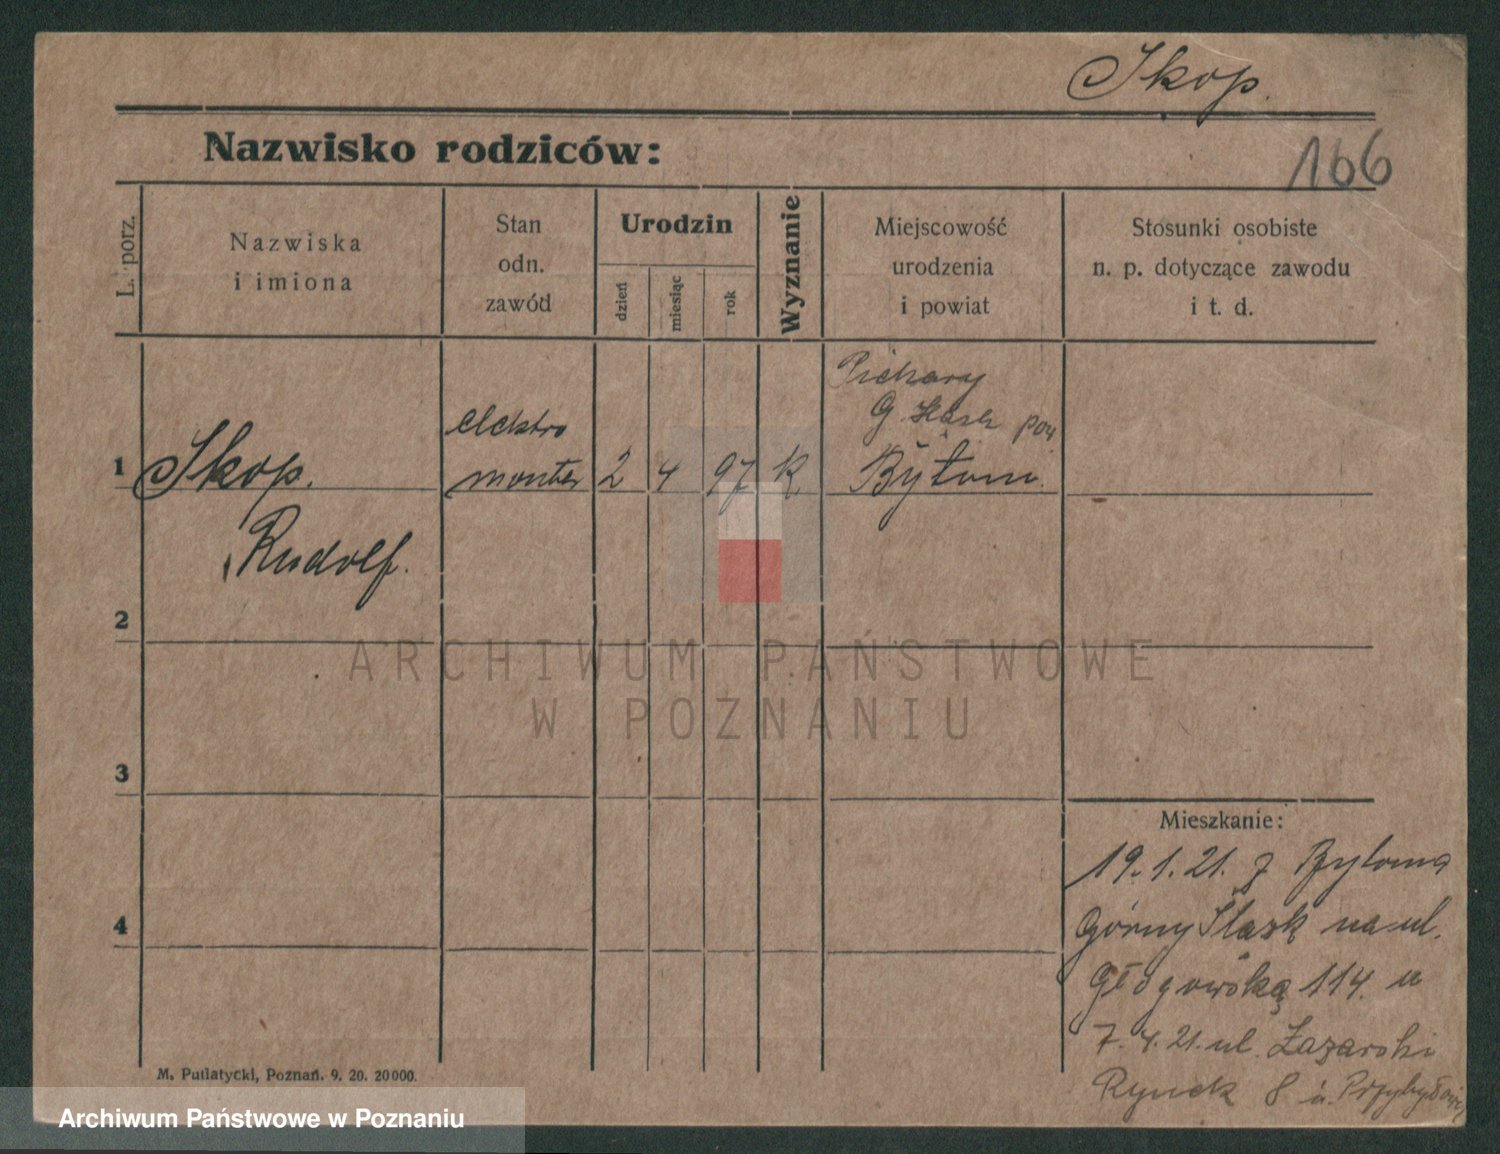 Skop.
166
Nazwisko rodziców:
L. porz.
Nazwiska
i imiona
Stan
odn.
zawód
Urodzin
dzień
miesiąc
rok
Wyznanie
Miejscowość
urodzenia
i powiat
Stosunki osobiste
n. p. dotyczące zawodu
i t. d.
1
Skop.
Rudolf.
elektro
monter
2
4
97
K
Piekary
G. pow
Bytom
2
3
4
Mieszkanie:
19.1.21. z Bytoma
Górny Śląsk na ul.
Głogowską 114. u
7.4.21. ul. Łazarski
Rynek 8 u.
M. Putiatycki, Poznań. 9. 20. 20000.
ARCHIWUM PAŃSTWOWE
W POZNANIU
Archiwum Państwowe w Poznaniu